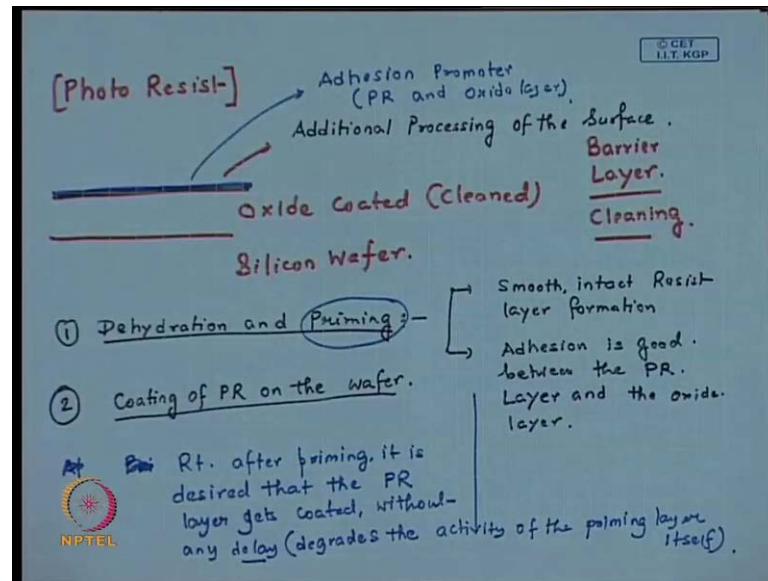 © CET
I.I.T. KGP
[Photo Resist]
Adhesion Promoter
(PR and Oxide layer).
Additional Processing of the Surface.
Barrier
Layer.
Cleaning.
Oxide Coated (Cleaned)
Silicon Wafer.
① Dehydration and Priming:-
Smooth, intact Resist
layer formation
Adhesion is good.
between the PR.
Layer and the oxide.
layer.
② Coating of PR on the wafer.
Rt. after priming. it is
desired that the PR
layer gets coated, without
any delay (degrades the activity of the priming layer
itself).
NPTEL